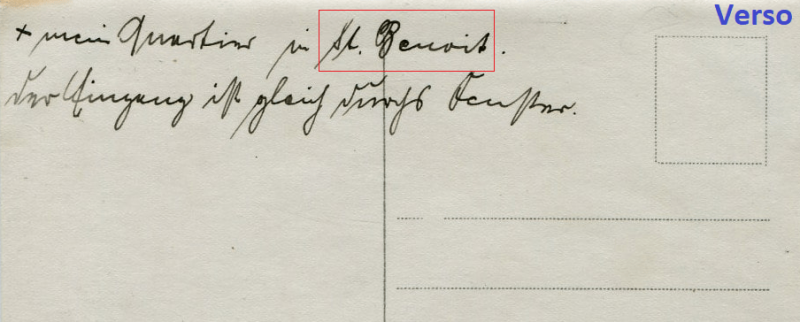 Verso
+ mein Quartier in St. Benoit.
der Eingang ist gleich durchs Fenster.